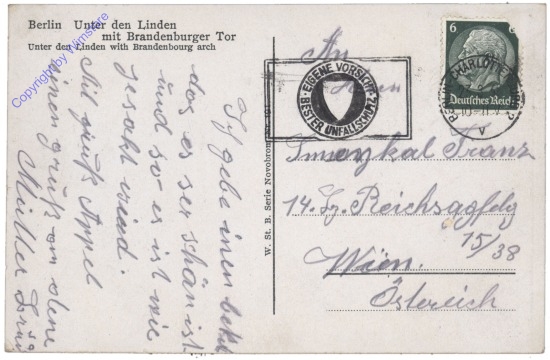 Berlin Unter den Linden
mit Brandenburger Tor
Unter den Linden with Brandenbourg arch
Copyright by Winistore
Ich gebe inen
das es ser schön ist
und so es ist wie
gesakt wird.
Mit gruß Appel
einen gruß an deine
Mutter
W. St. B. Serie Novobrom
EIGENE VORSICHT
BESTER UNFALLSCHUTZ
6
Deutsches Reich
CHARLOTTEN
V
An
Herrn
Franz
14. Bz. Reichsapfelg
15/38
Wien
Österreich